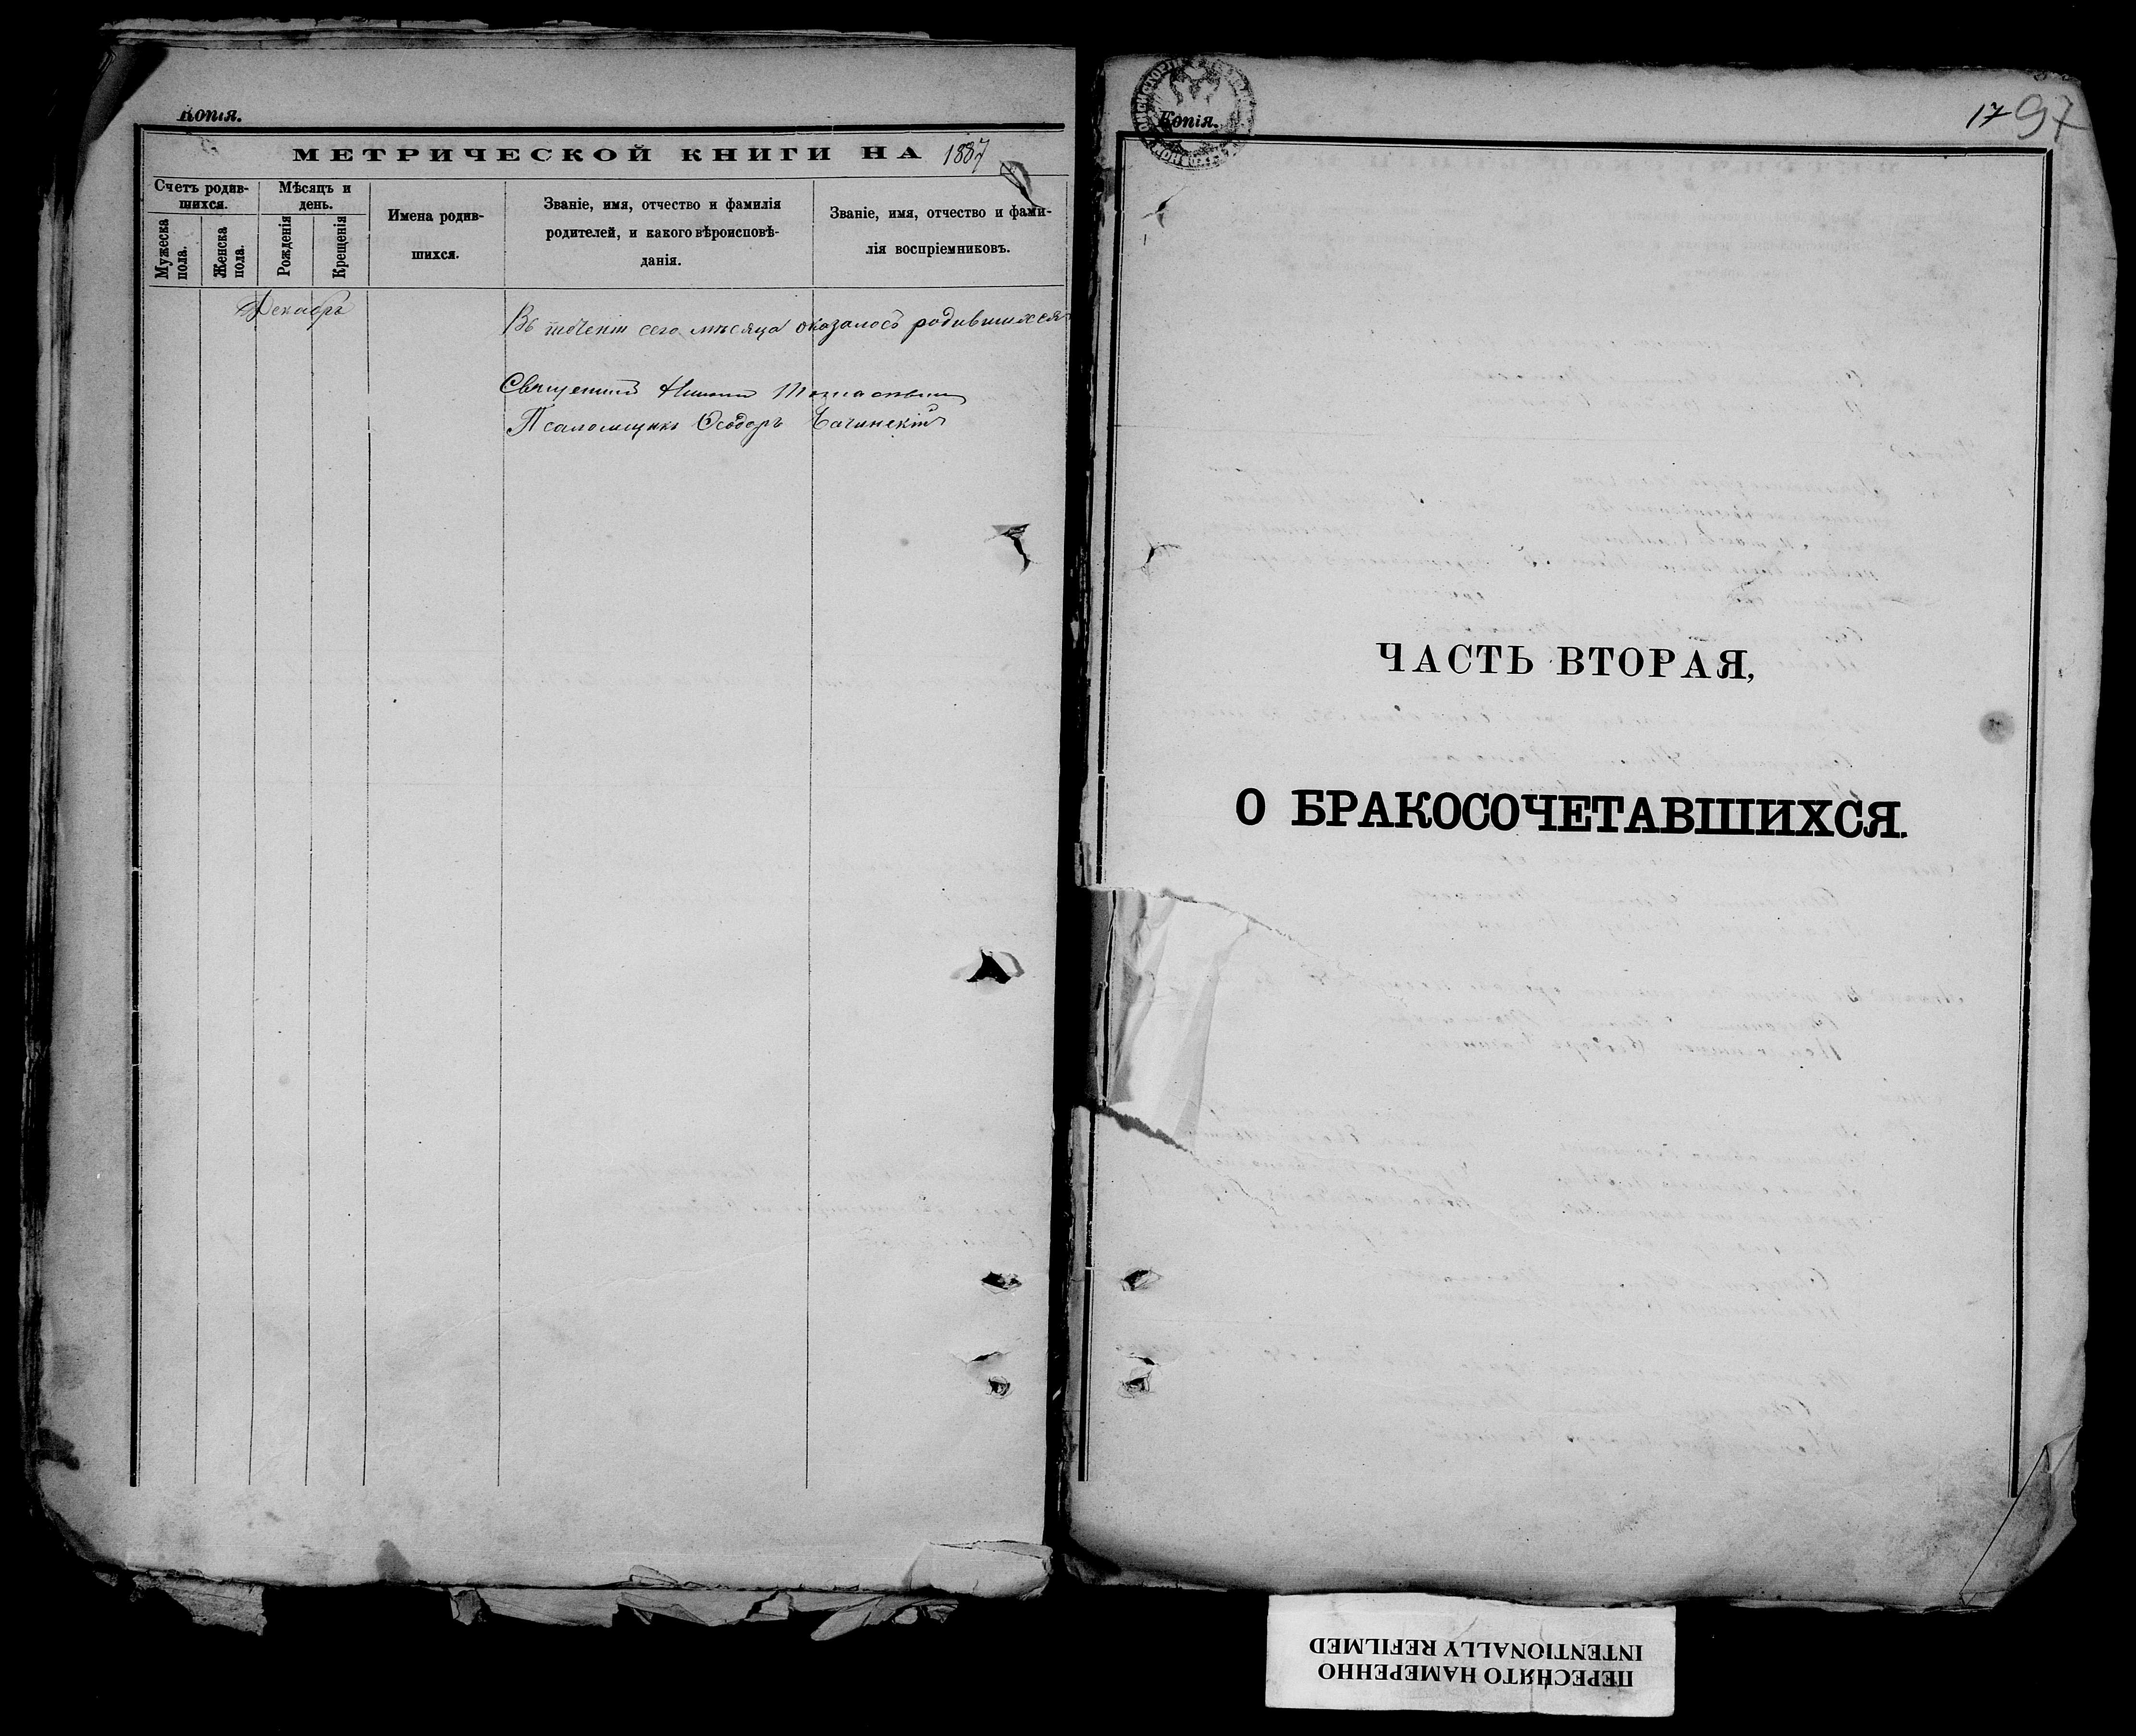 Копія.
МЕТРИЧЕСКОЙ КНИГИ НА 1887
Счетъ родив-
шихся.
Мужеска
пола.
Женска
пола.
Мѣсяцъ и
день.
Рожденія
Крещенія
Имена родив-
шихся.
Званіе, имя, отчество и фамилія
родителей, и какого вѣроисповѣ-
данія.
Званіе, имя, отчество и фами-
лія воспріемниковъ.
Декабрь
Въ теченіи сего мѣсяца оказалось родившихся
Священникъ
Псаломщикъ Ѳеодоръ
Копія.
17 97
ЧАСТЬ ВТОРАЯ,
О БРАКОСОЧЕТАВШИХСЯ.
ПЕРЕСНЯТО НАМЕРЕННО
INTENTIONALLY REFILMED